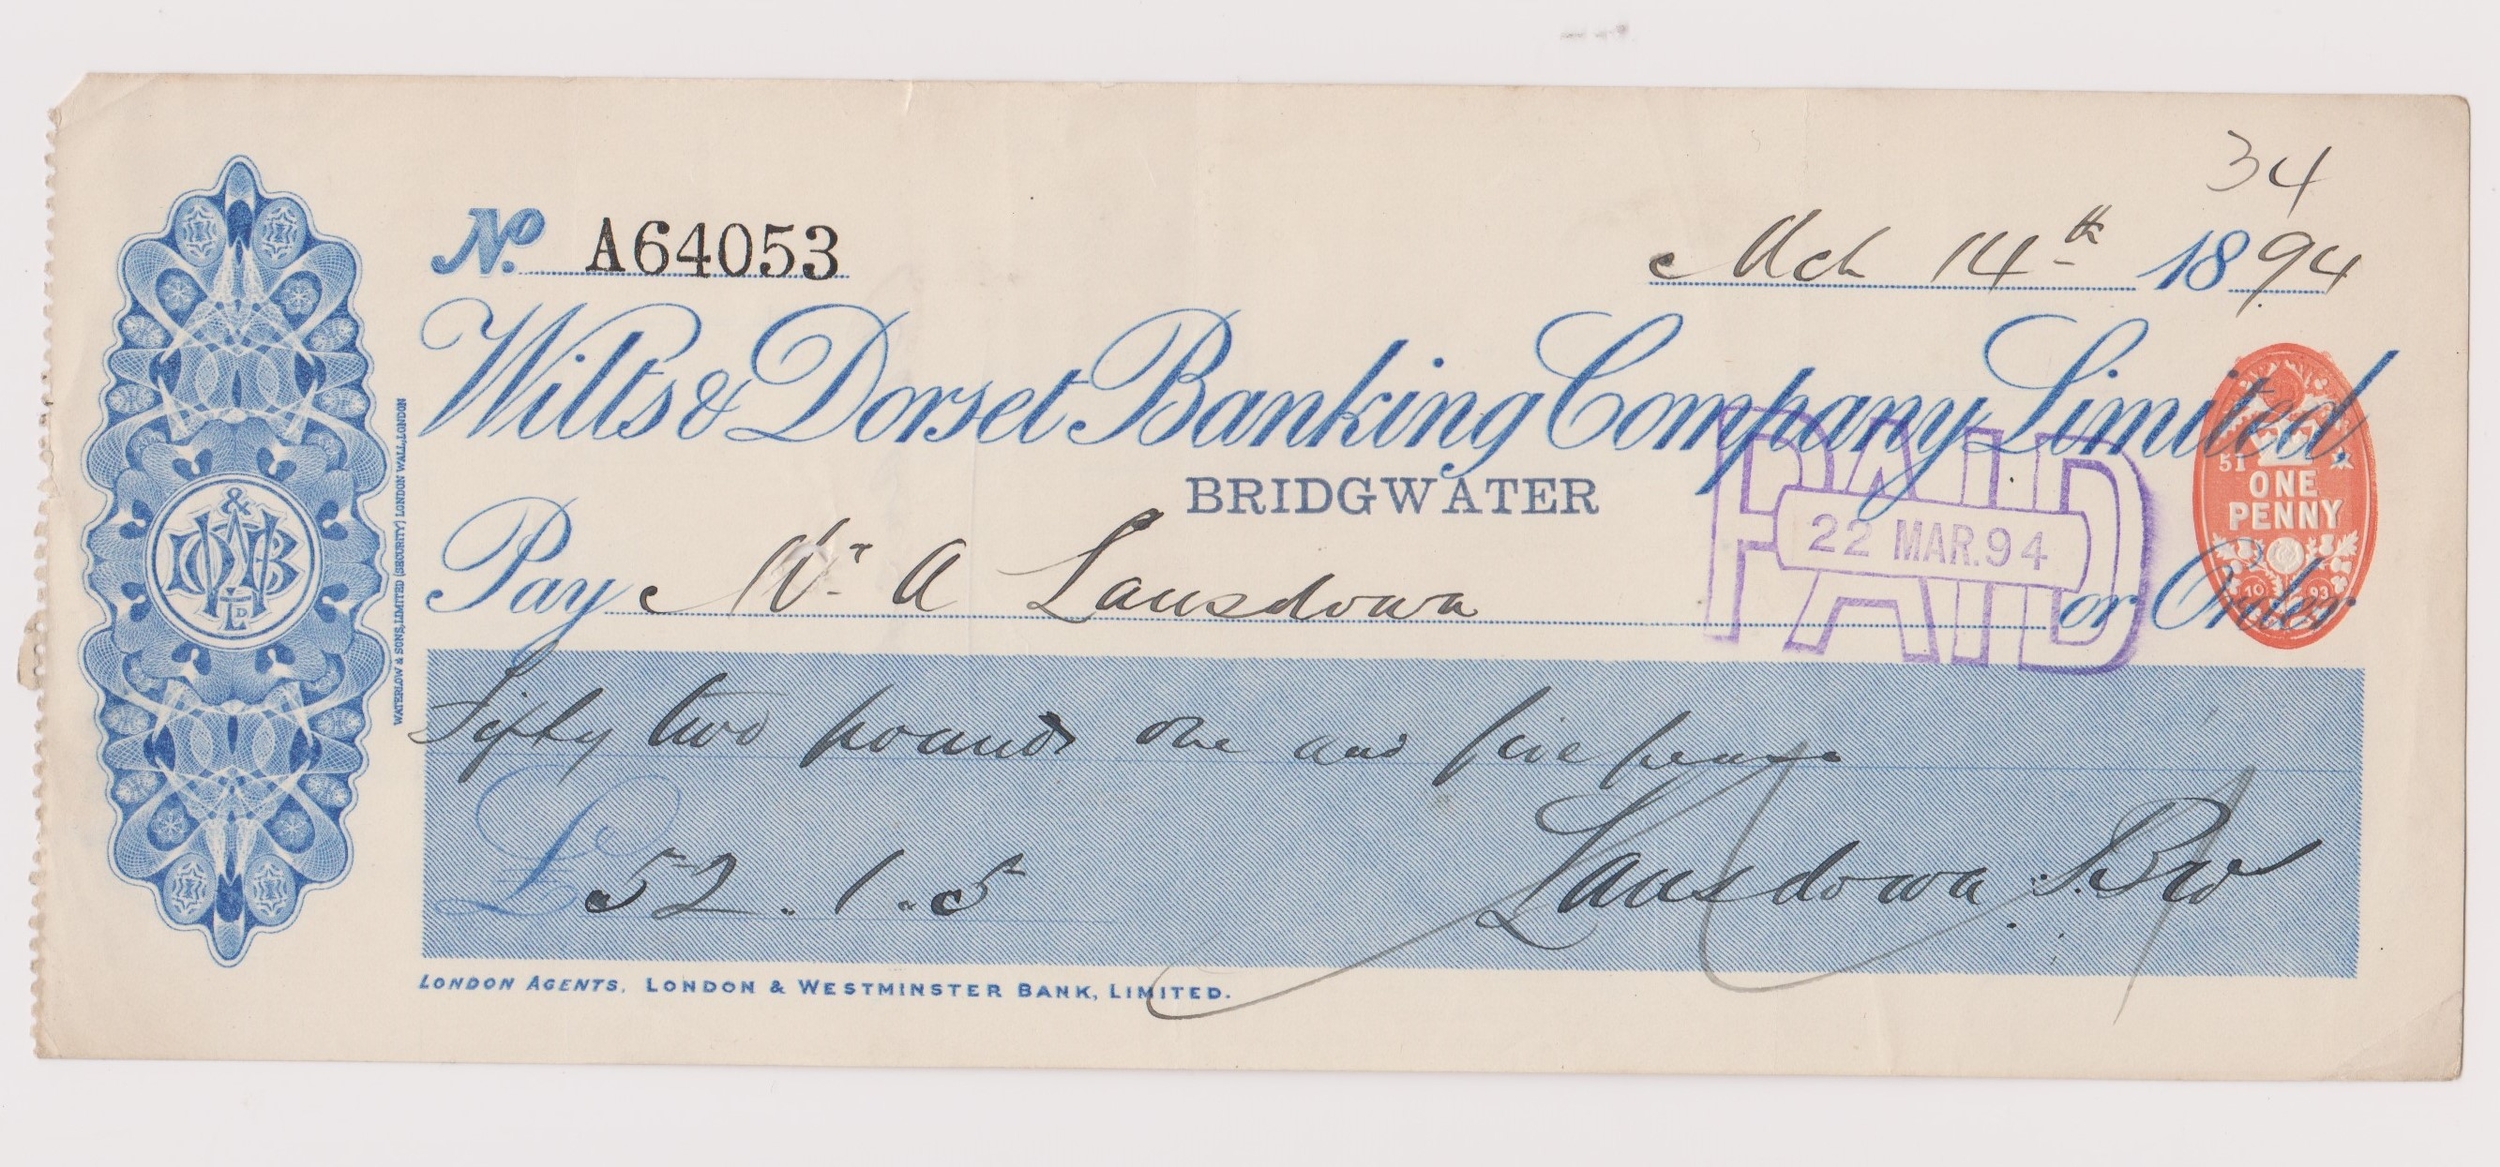 34
No. A64053
Mch 14th 1894
Wilts & Dorset Banking Company Limited
BRIDGWATER
51
ONE
PENNY
10 93
PAID
22 MAR.94
Pay Mr A Lansdown or Order
Fifty two pounds one and five pence
£ 52.1.5
Lansdown Bro
LONDON AGENTS, LONDON & WESTMINSTER BANK, LIMITED.
WATERLOW & SONS, LIMITED (SECURITY) LONDON WALL, LONDON
W & D B Co LD